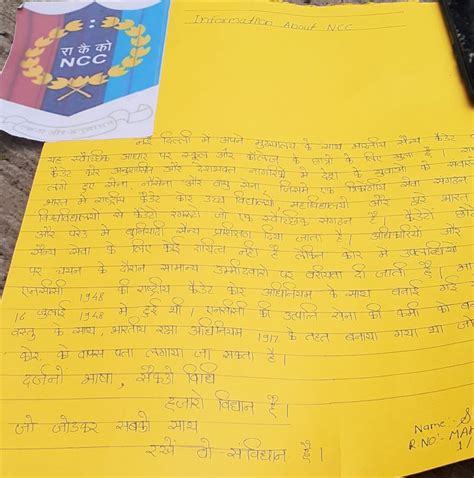 रा कै को
NCC
एकता और अनुशासन
Information About NCC
नई दिल्ली में अपने मुख्यालय के साथ भारतीय सैन्य कैडेट
यह स्वैच्छिक आधार पर स्कूल और कॉलेज के छात्रों के लिए खुला है।
कैडेट कोर अनुशासित और देशभक्त नागरिकों में देश के युवाओं को
लगे हुए सेना, नौसेना और वायु सेना, जिसमें एक त्रिकोणीय सेवा संगठन
भारत में राष्ट्रीय कैडेट कोर उच्च विद्यालयों, महाविद्यालयों और पूरे भारत
विश्वविद्यालयों से कैडेटों रंगरूटों जो एक स्वैच्छिक संगठन है। कैडेटों
और परेड में बुनियादी सैन्य प्रशिक्षण दिया जाता है। अधिकारियों और
सैन्य सेवा के लिए कोई दायित्व नहीं है लेकिन कोर में उपलब्धियों
पर चयन के दौरान सामान्य उम्मीदवारों पर वरीयता दी जाती है।
एनसीसी 1948 की राष्ट्रीय कैडेट कोर अधिनियम के साथ बनाई गई
16 जुलाई 1948 में हुई थी। एनसीसी की उत्पत्ति सेना की कमी को
वस्तु के साथ, भारतीय रक्षा अधिनियम 1917 के तहत बनाया गया था जो
कोर को वापस पता लगाया जा सकता है।
दर्जनों भाषा, सैकड़ो विधि
हजारो विधान है।
जो जोडकर सबको साथ
रखें वो संविधान है।
Name:-
R NO:-